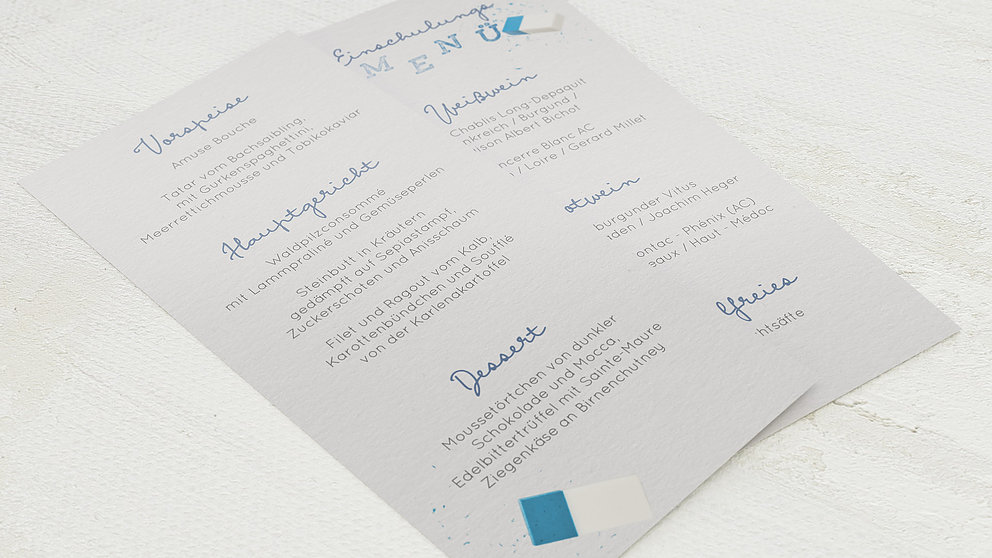 Einschulungs
MENÜ
Vorspeise
Amuse Bouche
Tatar vom Bachsaibling,
mit Gurkenspaghettini,
Meerrettichmousse und Tobikokaviar
Hauptgericht
Waldpilzconsommé
mit Lammpraliné und Gemüseperlen
Steinbutt in Kräutern
gedämpft auf Sepiastampf,
Zuckerschoten und Anisschaum
Filet und Ragout vom Kalb,
Karottenbündchen und Soufflé
von der Karlenakartoffel
Dessert
Moussetörtchen von dunkler
Schokolade und Mocca,
Edelbittertrüffel mit Sainte-Maure
Ziegenkäse an Birnenchutney
Weißwein
Chablis Long Depaquit
nkreich / Burgund /
lison Albert Bichot
ncerre Blanc AC
/ Loire / Gerard Millet
otwein
burgunder Vitus
den / Joachim Heger
ontac - Phénix (AC)
eaux / Haut - Médoc
lfreies
htsäfte